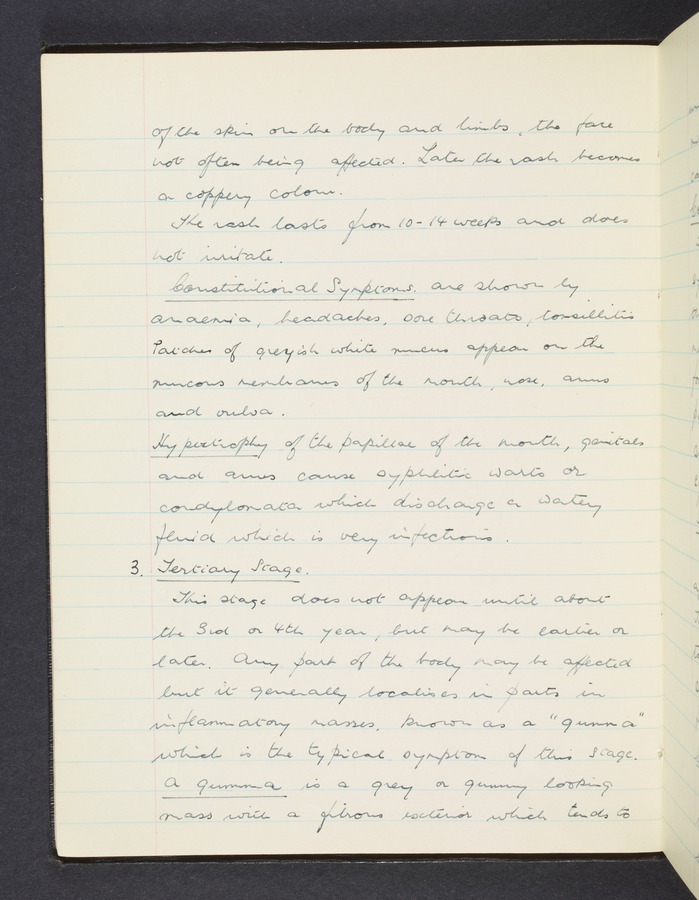 of the skin on the body and limbs, the face
not often being affected. Later the rash becomes
a coppery colour.
The rash lasts from 10-14 weeks and does
not irritate.
Constitutional Symptoms. are shown by
anaemia, headaches, sore throats, tonsillitis
Patches of greyish white mucus appear on the
mucous membranes of the mouth, nose, anus
and vulva.
Hypertrophy of the papillae of the mouth, genitals
and anus cause syphilitic warts or
condylomata which discharge a watery
fluid which is very infectious.
3. Tertiary Stage.
This stage does not appear until about
the 3rd or 4th year, but may be earlier or
later. Any part of the body may be affected
but it generally localises in parts in
inflammatory masses, known as a "gumma"
which is the typical symptom of this stage.
A gumma is a grey or gummy looking
mass with a fibrous exterior which tends to